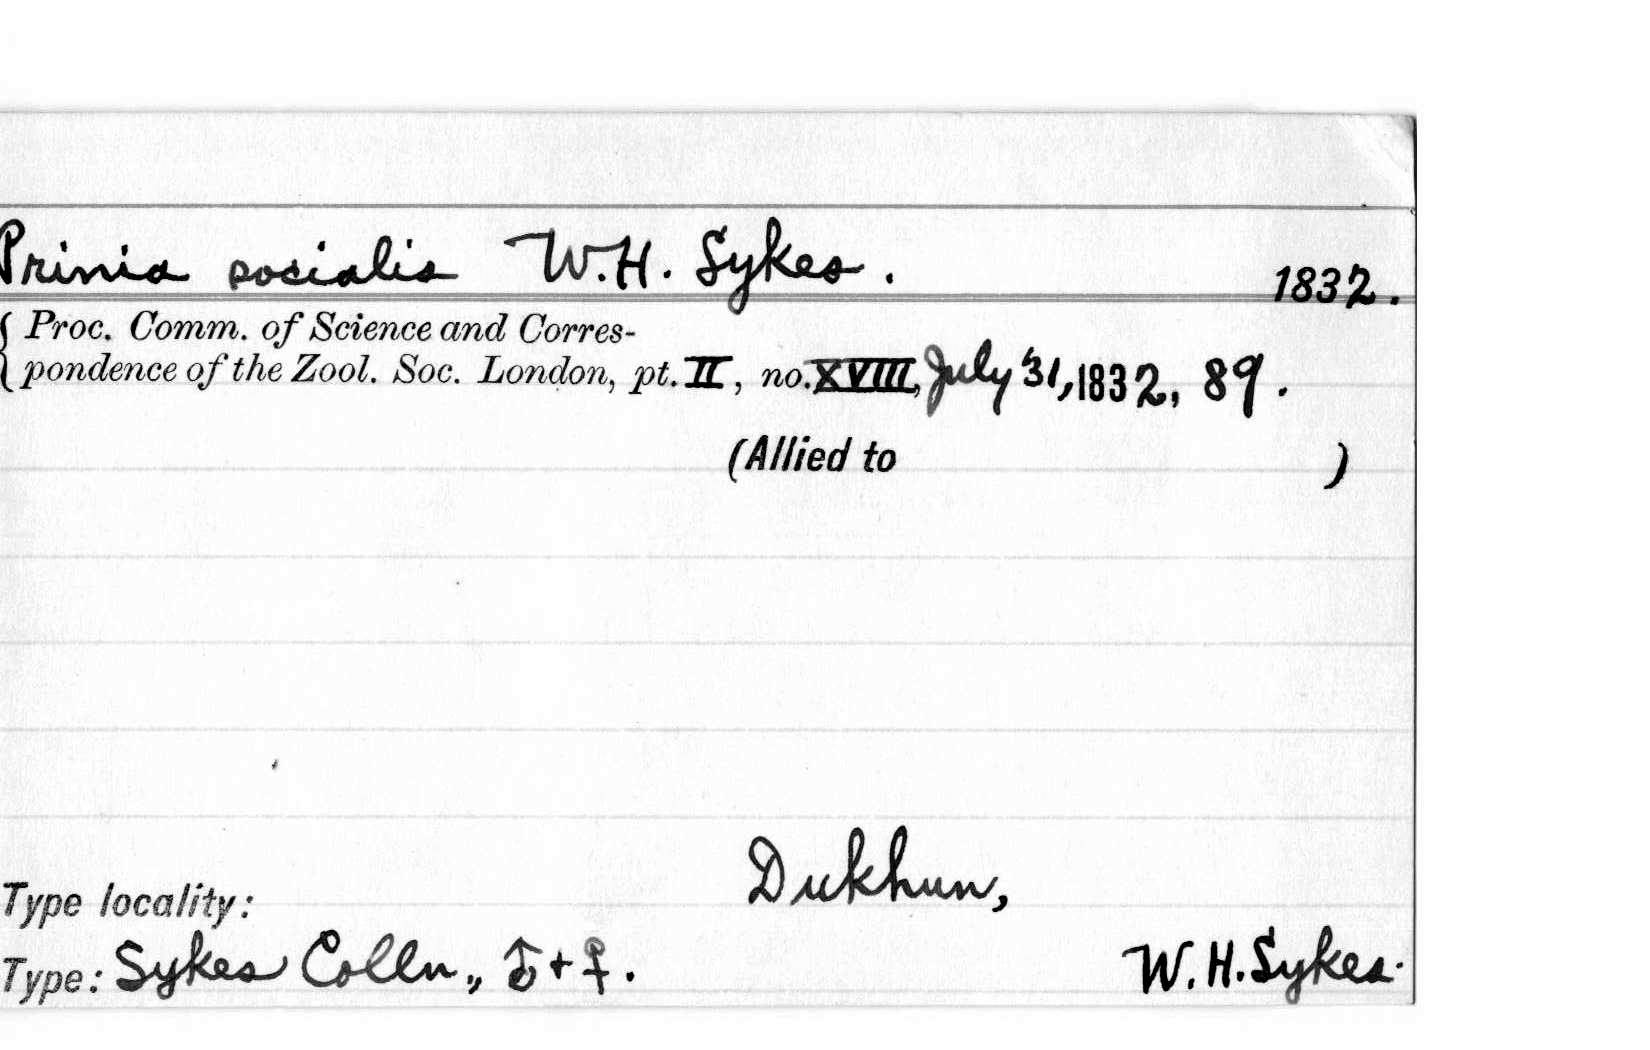 Prinia socialis W.H. Sykes. 1832.
{ Proc. Comm. of Science and Corres-
pondence of the Zool. Soc. London, pt. II, no. XVIII, July 31, 1832, 89.
(Allied to )
Dukhun,
Type locality:
Type: Sykes Colln., ♂ + ♀. W.H. Sykes.